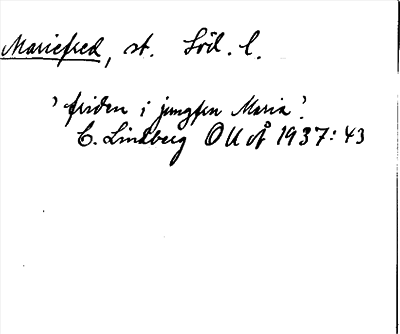 Mariefred, st. Söd. l.
'friden i jungfru Maria'.
C. Lindberg OUÅ 1937:43